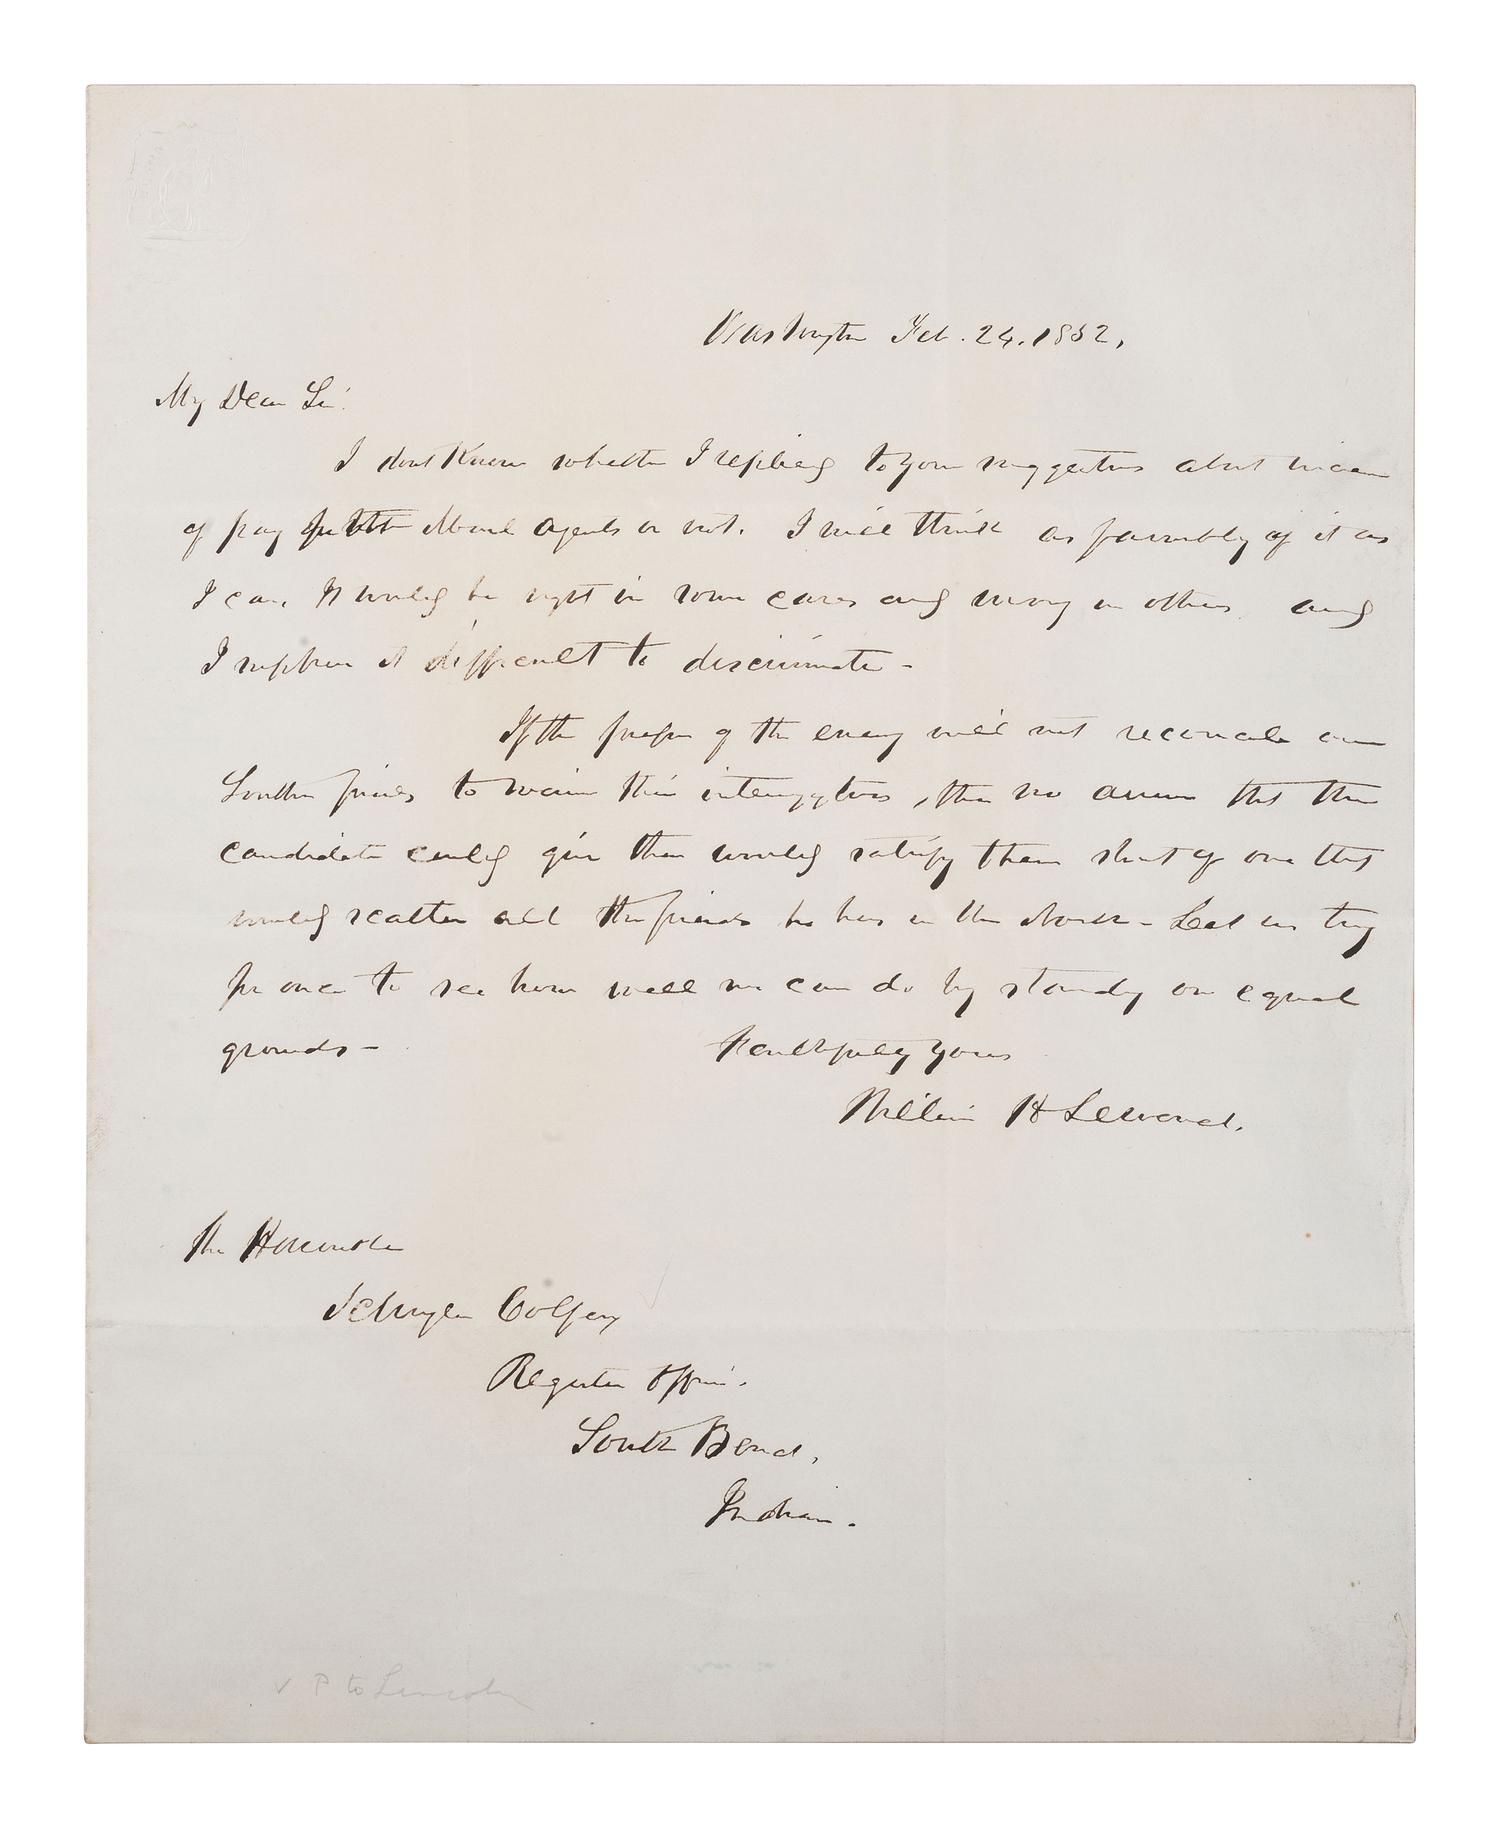 Washington Feb. 24. 1852.
My Dear Sir.
I dont Know whether I replied to your suggestions about increase
of pay for Mail Agents or not. I will think as favorably of it as
I can. It would be right in some cases and wrong in others and
I suppose it difficult to discriminate -
If the prefer of the enemy will not reconcile our
Southern friends to waive their interrogatories, then no answer that the
candidate could give them would satisfy them short of one that
would scatter all the friends he has in the North - Let us try
for once to see how well we can do by standing on equal
grounds -
Faithfully Yours
William H Seward.
The Honorable
Schuyler Colfax
Register Office.
South Bend,
Indiana.
v P to Lincoln